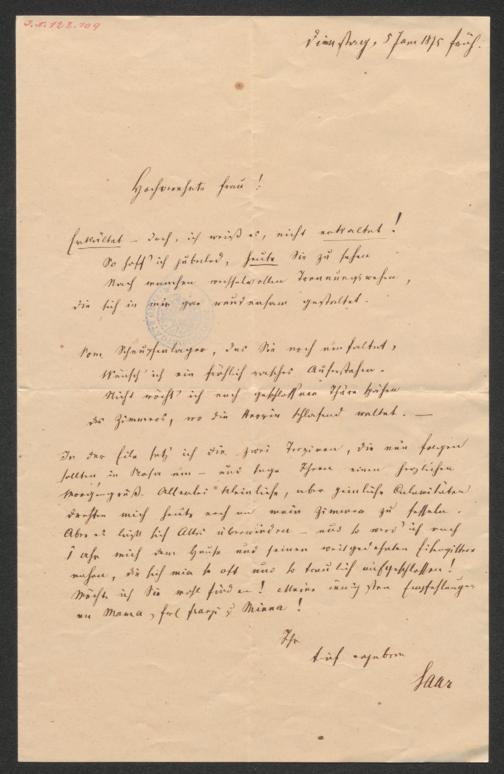 I.N. 122.109
Dienstag, 5 Jan 1875 früh.
Hochverehrte Frau!
Erkältet – doch, ich weiß es, nicht erkaltet!
So hoff' ich jubelnd, heute Sie zu sehen
Nach manchen wechselvollen Trennungswehen,
die sich in mir gar wundersam gestaltet.
Vom Schnupfenlager, das Sie noch umfaltet,
Wünsch' ich ein fröhlich rasches Auferstehen.
Nicht möcht' ich auch geschlossner Thüre
des Zimmers, wo die Herrin schlafend waltet. —
In der Eile setz' ich die zwei Terzinen, die nun folgen
sollten in Prosa um – und sage Ihnen einen herzlichen
Morgengruß. Allerlei kleinliche, aber peinliche Calamitäten
drohten mich heute noch an mein Zimmer zu fesseln.
Aber es läßt sich Alles überwinden – und so werd' ich nach
1 Uhr mich dem Hause und seinen weitgedehnten Eisengittern
nahen, die sich mir so oft und so traulich aufgeschlossen!
Möcht' ich Sie wohl finden! Meine innigsten Empfehlungen
an Mama, Frl Franzi & Minna!
Ihr
tief ergebener
Saar